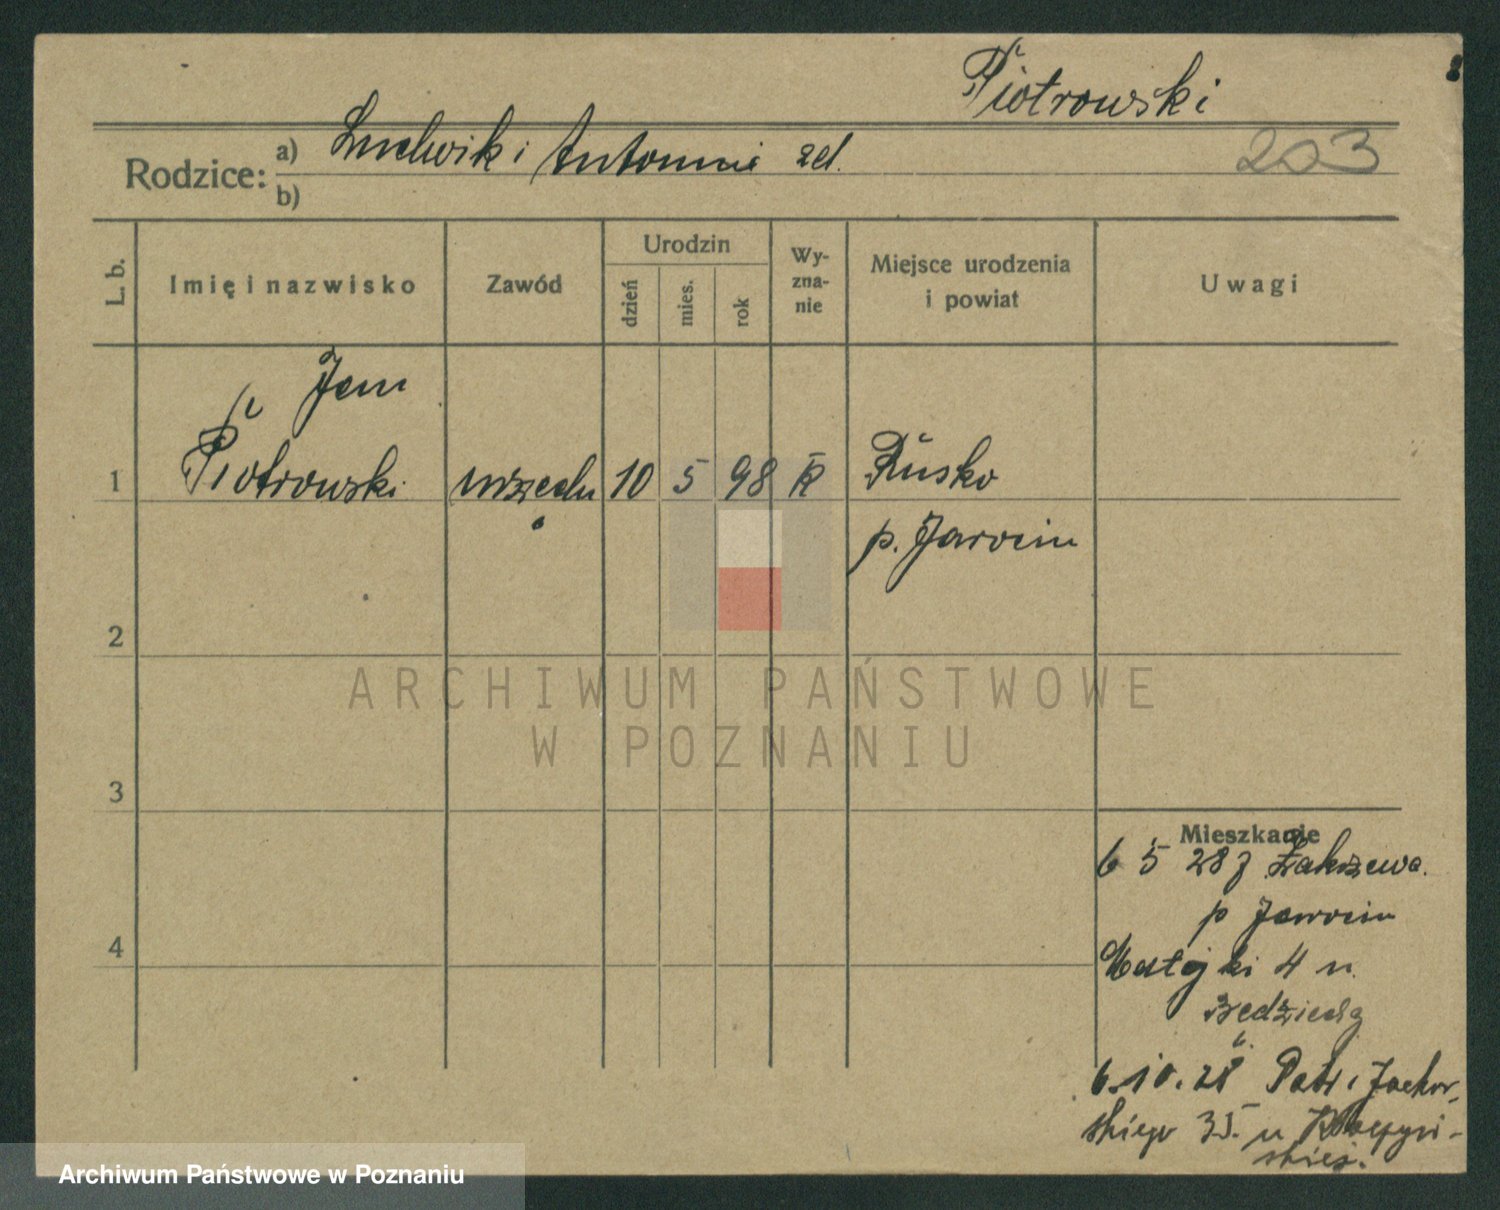 Piotrowski
203
Rodzice: a) Ludwik i Antonina zd.
b)
L. b. Imię i nazwisko Zawód Urodzin dzień mies. rok Wyznanie Miejsce urodzenia i powiat Uwagi
Jan
1 Piotrowski urzędn 10 5 98 R Rusko
p. Jarocin
2
ARCHIWUM PAŃSTWOWE
W POZNANIU
3
Mieszkanie
6 5 28 z Zakrzewa.
p Jarocin
4
Matejki 4 u
6.10.28 Patr. Jackow-
skiego 35. u
Archiwum Państwowe w Poznaniu